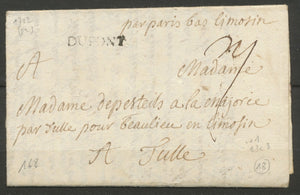 par paris bas Limosin
DUPONT
A Madame
Madame de
a la majorce
par Tulle pour Beaulieu en Limosin
A Tulle
168
18